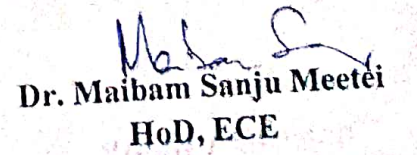 Dr. Maibam Sanju Meetei
HoD, ECE